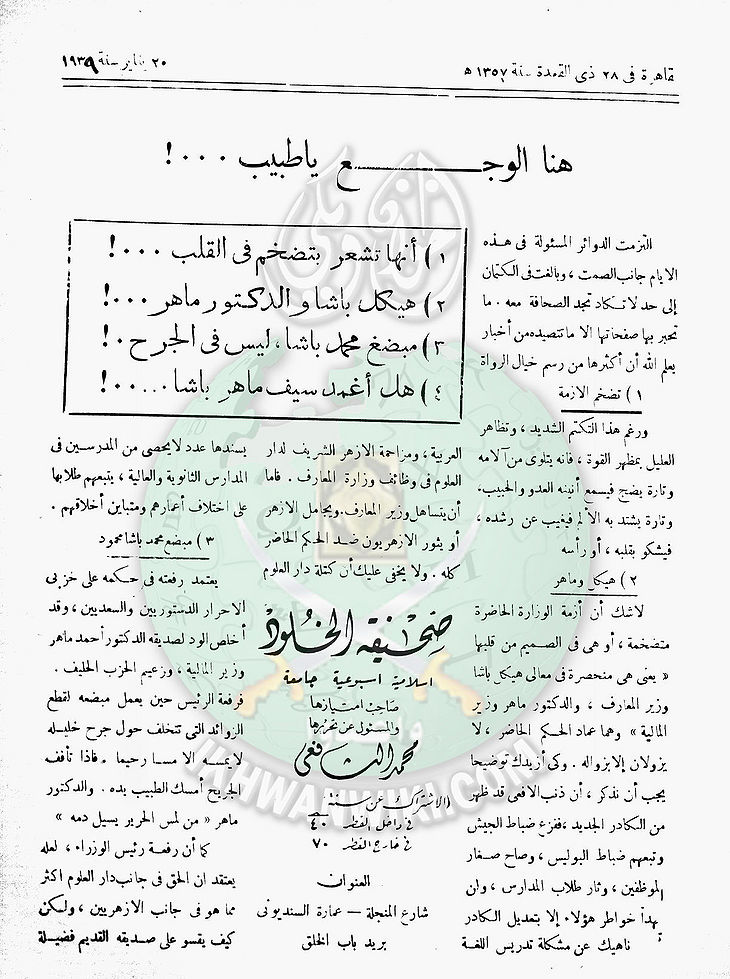 قاهرة فى ٢٨ ذى القعدة سنة ١٣٥٧ ه
٢٠ يناير سنة ١٩٣٩
هنا الوجع ياطبيب ٠٠٠!
١) أنها تشعر بتضخم فى القلب ٠٠٠!
٢) هيكل باشا و الدكتور ماهر ٠٠٠!
٣) مبضغ محمد باشا، ليس فى الجرح ٠!
٤) هل أغمد سيف ماهر باشا ٠٠٠٠٠!
التزمت الدوائر المسئولة فى هذه
الايام جانب الصمت ، وبالغت فى الكتمان
إلى حد لاتكاد تجد الصحافة معه . ما
تحبر بها صفحاتها الا ماتتصيده من أخبار
يعلم الله أن أكثرها من رسم خيال الرواة
١) تضخم الازمة
ورغم هذا التكتم الشديد ، وتظاهر
العليل بمظهر القوة ، فانه يتلوى من آلامه
وتارة يضج فيسمع أنينه العدو والحبيب،
وتارة يشتد به الألم فيغيب عن رشده ،
فيشكو بقلبه ، أو رأسه
٢) هيكل وماهر
لاشك أن أزمة الوزارة الحاضرة
متضخمة ، أو هى فى الصميم من قلبها
« يعنى هى منحصرة فى معالى هيكل باشا
وزير المعارف ، والدكتور ماهر وزير
المالية » وهما عماد الحكم الحاضر ، لا
يزولان إلا بزواله . وكى أزيدك توضيحا
يجب أن نذكر ، أن ذنب الافعى قد ظهر
من الكادر الجديد ،ففزع ضباط الجيش
وتبعهم ضباط البوليس ، وصاح صغار
الموظفين ، وثار طلاب المدارس ، ولن
تهدأ خواطر هؤلاء إلا بتعديل الكادر
ناهيك عن مشكلة تدريس اللغة
العربية ، ومزاحمة الازهر الشريف لدار
العلوم فى وظائف وزارة المعارف . فاما
أن يتساهل وزير المعارف.ويجامل الازهر
أو يثور الازهريون ضد الحكم الحاضر
كله . ولا يخفى عليك أن كتلة دار العلوم
صحيفة الخلود
اسلامية اسبوعية جامعة
صاحب امتيازها
والمسئول عن تحريرها
محمد الشافعى
الاشتراك عن سنة
فى داخل القطر ٤٠
فى خارج القطر ٧٠
العنوان
شارع المنجلة — عمارة السنديونى
بريد باب الخلق
يسندها عدد لايحصى من المدرسين فى
المدارس الثانوية والعالية ، يتبعهم طلابها
على اختلاف أعمارهم ومتباين أخلاقهم .
٣) مبضع محمد باشا محمود
يعتمد رفعته فى حكمه على حزبى
الاحرار الدستوريين والسعديين ، وقد
أخلص الود لصديقه الدكتور أحمد ماهر
وزير المالية ، وزعيم الحزب الحليف .
فرفعة الرئيس حين يعمل مبضعه لقطع
الزوائد التى تتخلف حول جرح خليله
لايمسه الا مسا رحيما . فاذا تأفف
الجريح أمسك الطبيب يده . والدكتور
ماهر « من لمس الحرير يسيل دمه »
كما أن رفعة رئيس الوزراء ، لعله
يعتقد ان الحق فى جانب دار العلوم اكثر
مما هو فى جانب الازهريين ، ولكن
كيف يقسو على صديقه القديم فضيلة
IKHWANWIKI.COM